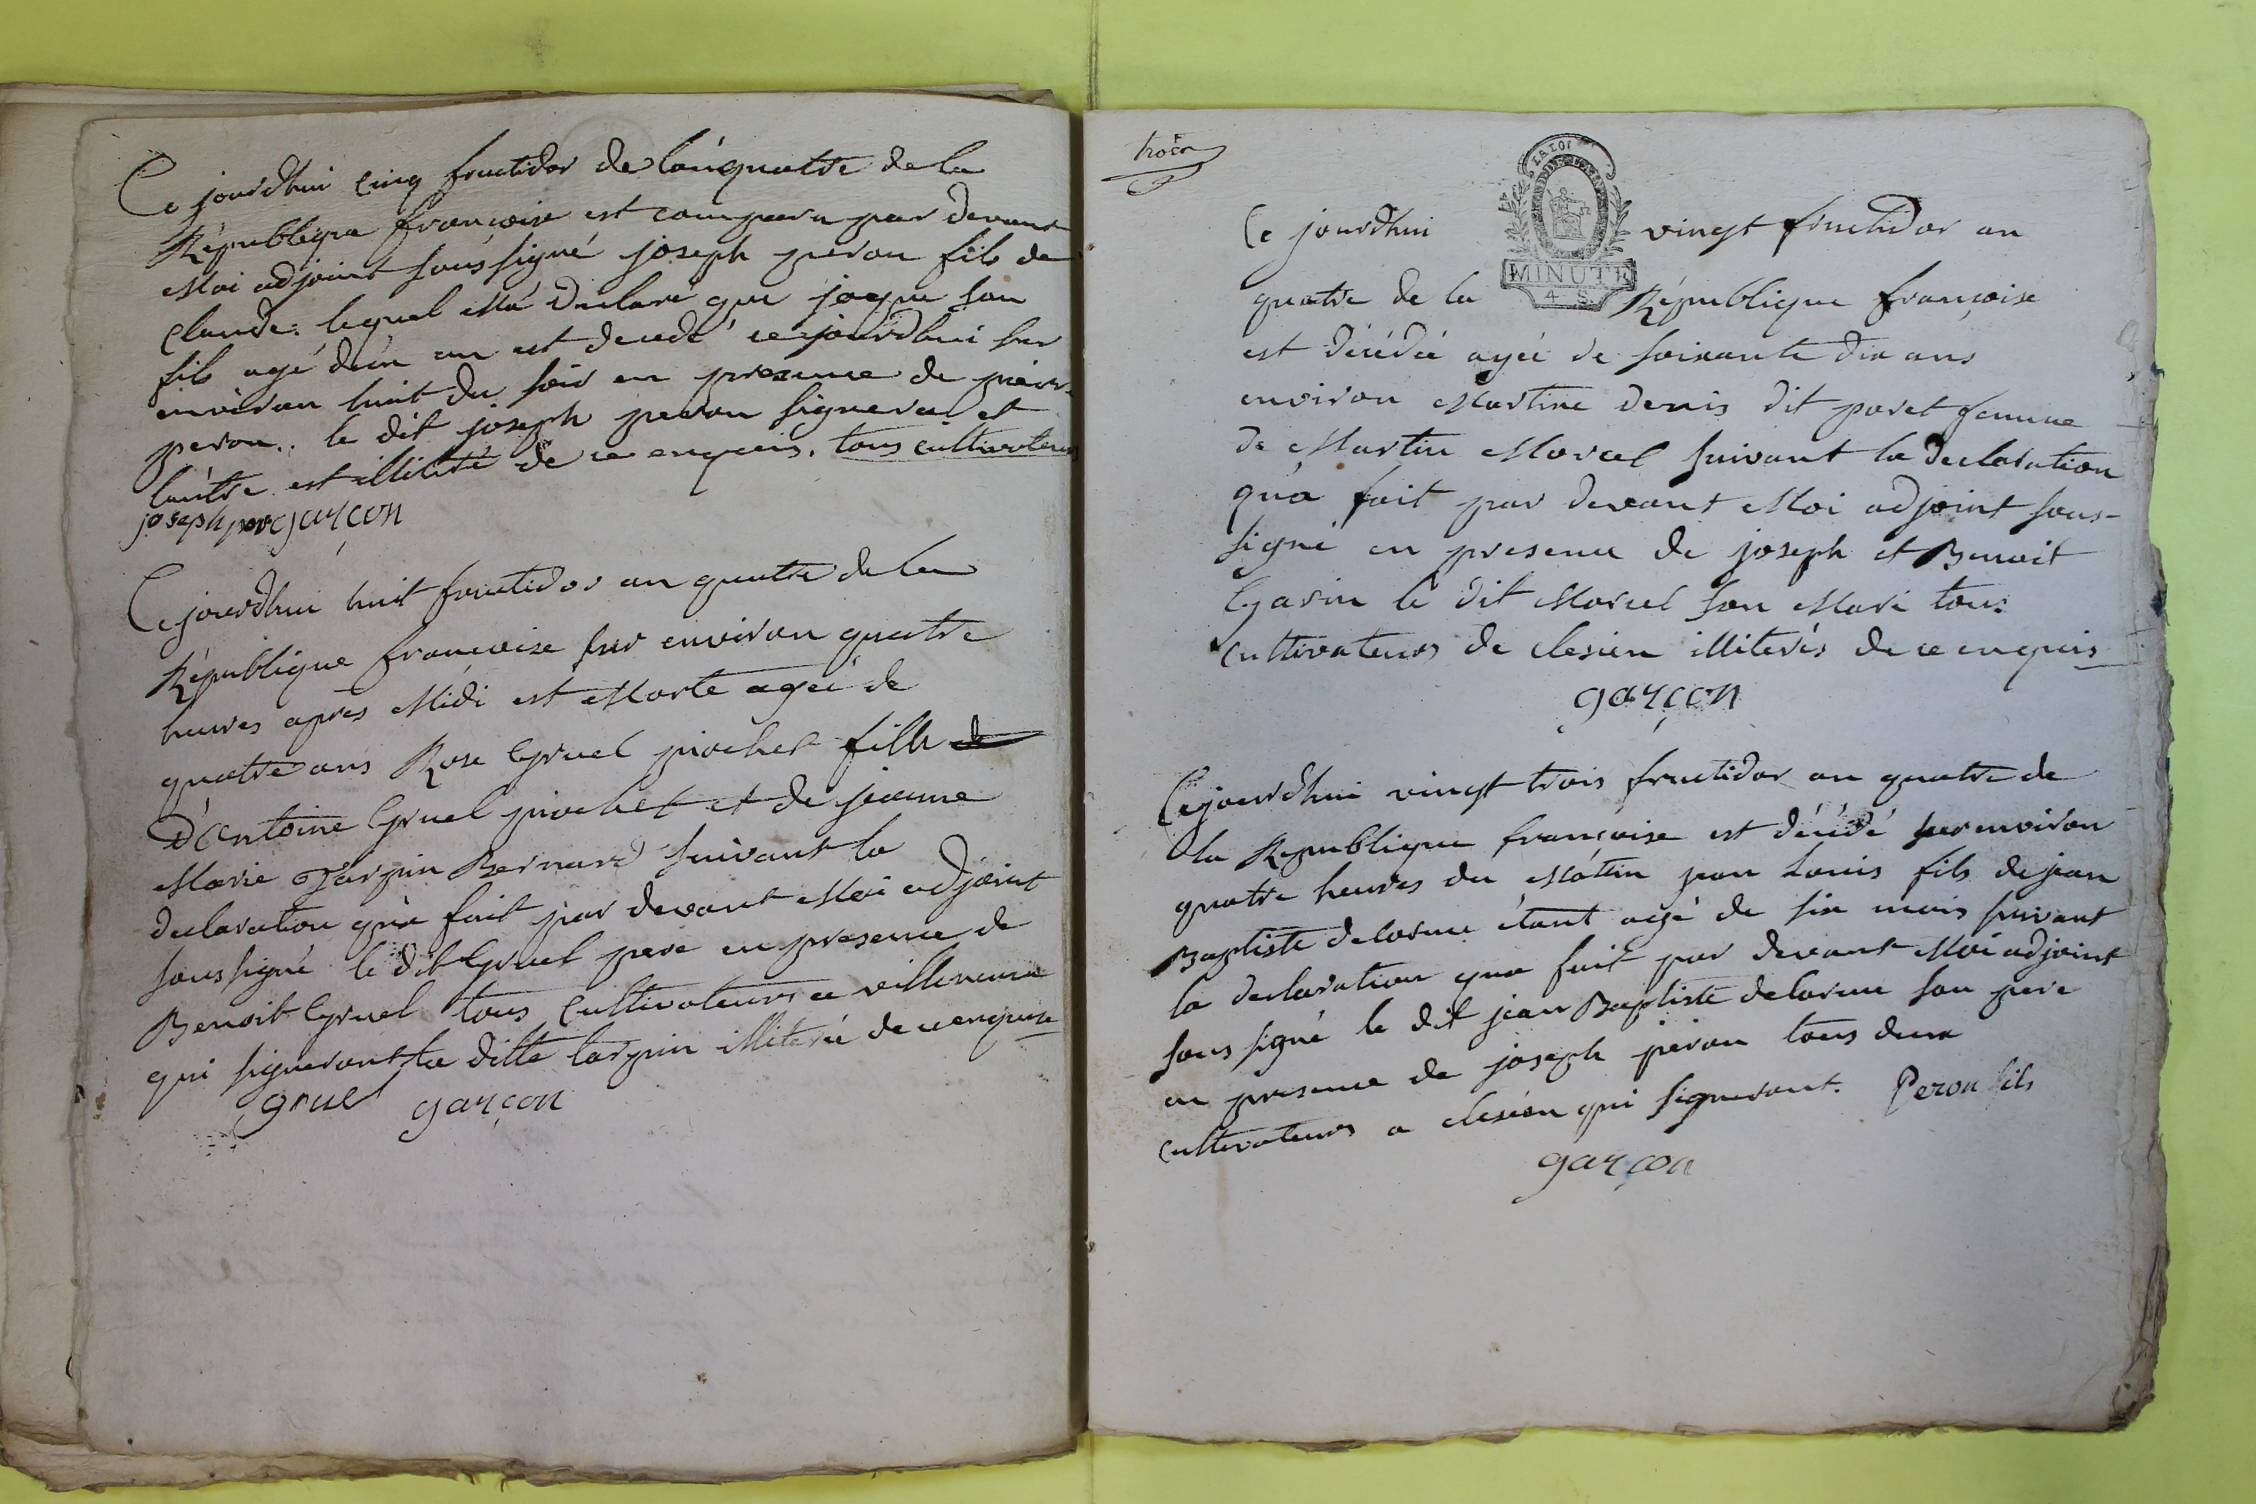 Ce jourdhui cinq fructidor de lanquatre de la
République francoise est comparu par devant
Moi adjoint sous signé joseph peron fils de
Claude. lequel M'a declaré que jaque son
fils agé d'un an est decedé ce jourdhui sur
environ huit du soir en presence de pierre
peron. le dit joseph peron signera et
lautre est illitéré de ce enquis. tous cultivateurs
joseph peron garçon
Ce jourdhui huit fructidor an quatre de la
République francoise sur environ quatre
heures après Midi est Morte agée de
quatre ans Rose Gruel piochet fille de
D'Antoine Gruel piochet et de jeanne
Marie Tarpin Bernard suivant la
declaration qu'a fait par devant Moi adjoint
soussigné le dit Gruel pere en presence de
Benoit Gruel tous Cultivateurs a villeneuve
qui signeront la ditte tarpin illiterée de ce enquise
gruel garçon
troi
LA LOI
Ce jourdhui vingt fructidor an
MINUTE
4 S.
quatre de la République françoise
est décédée agée de soixante dix ans
environ Martine Denis dit paret femme
de Martin Morcel suivant la declaration
qu'a fait par devant Moi adjoint sous-
signé en presence de joseph et Benoit
Garin le dit Morcel son Mari tous
Cultivateurs de clesieu illiterés de ce enquis
garçon
Cejourdhui vingt trois fructidor an quatre de
la République françoise est décédé sur environ
quatre heures du Mâtin jean Louis fils de jean
Baptiste delorme étant agé de six mois suivant
la declaration qua fait par devant Moi adjoint
sous signé le dit jean Baptiste delorme son pere
en presence de joseph peron tous deux
cultivateurs a clesieu qui signeront. Peron fils
garçon